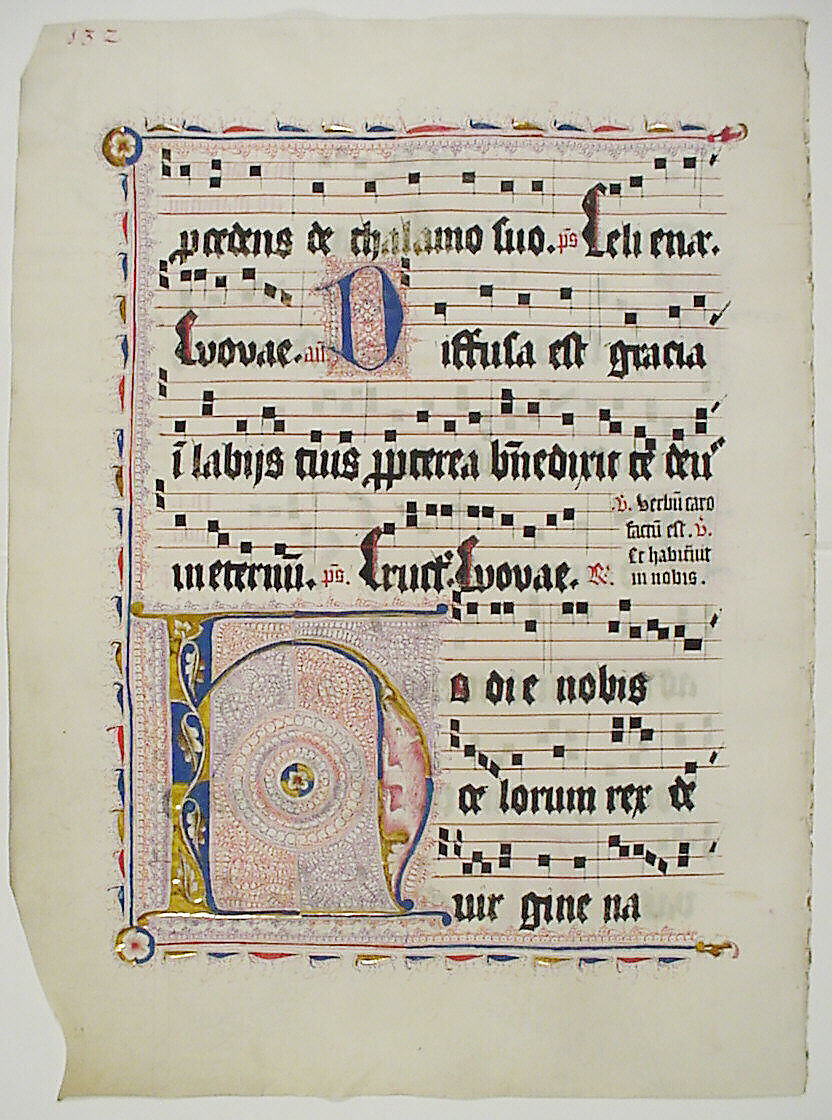 132
pcedens de thalamo suo. ps Celi enar.
Euouae. añ Diffusa est gracia
ī labijs tuis ppterea bñedixit te deu
in eternū. ps. Eruct. Euouae. R.
v. Verbū caro
factū est. v.
Et habitāuit
in nobis.
Ho die nobis
ce lorum rex de
uir gine na